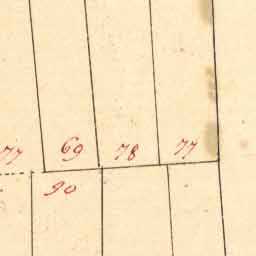 77 69 78 77
90